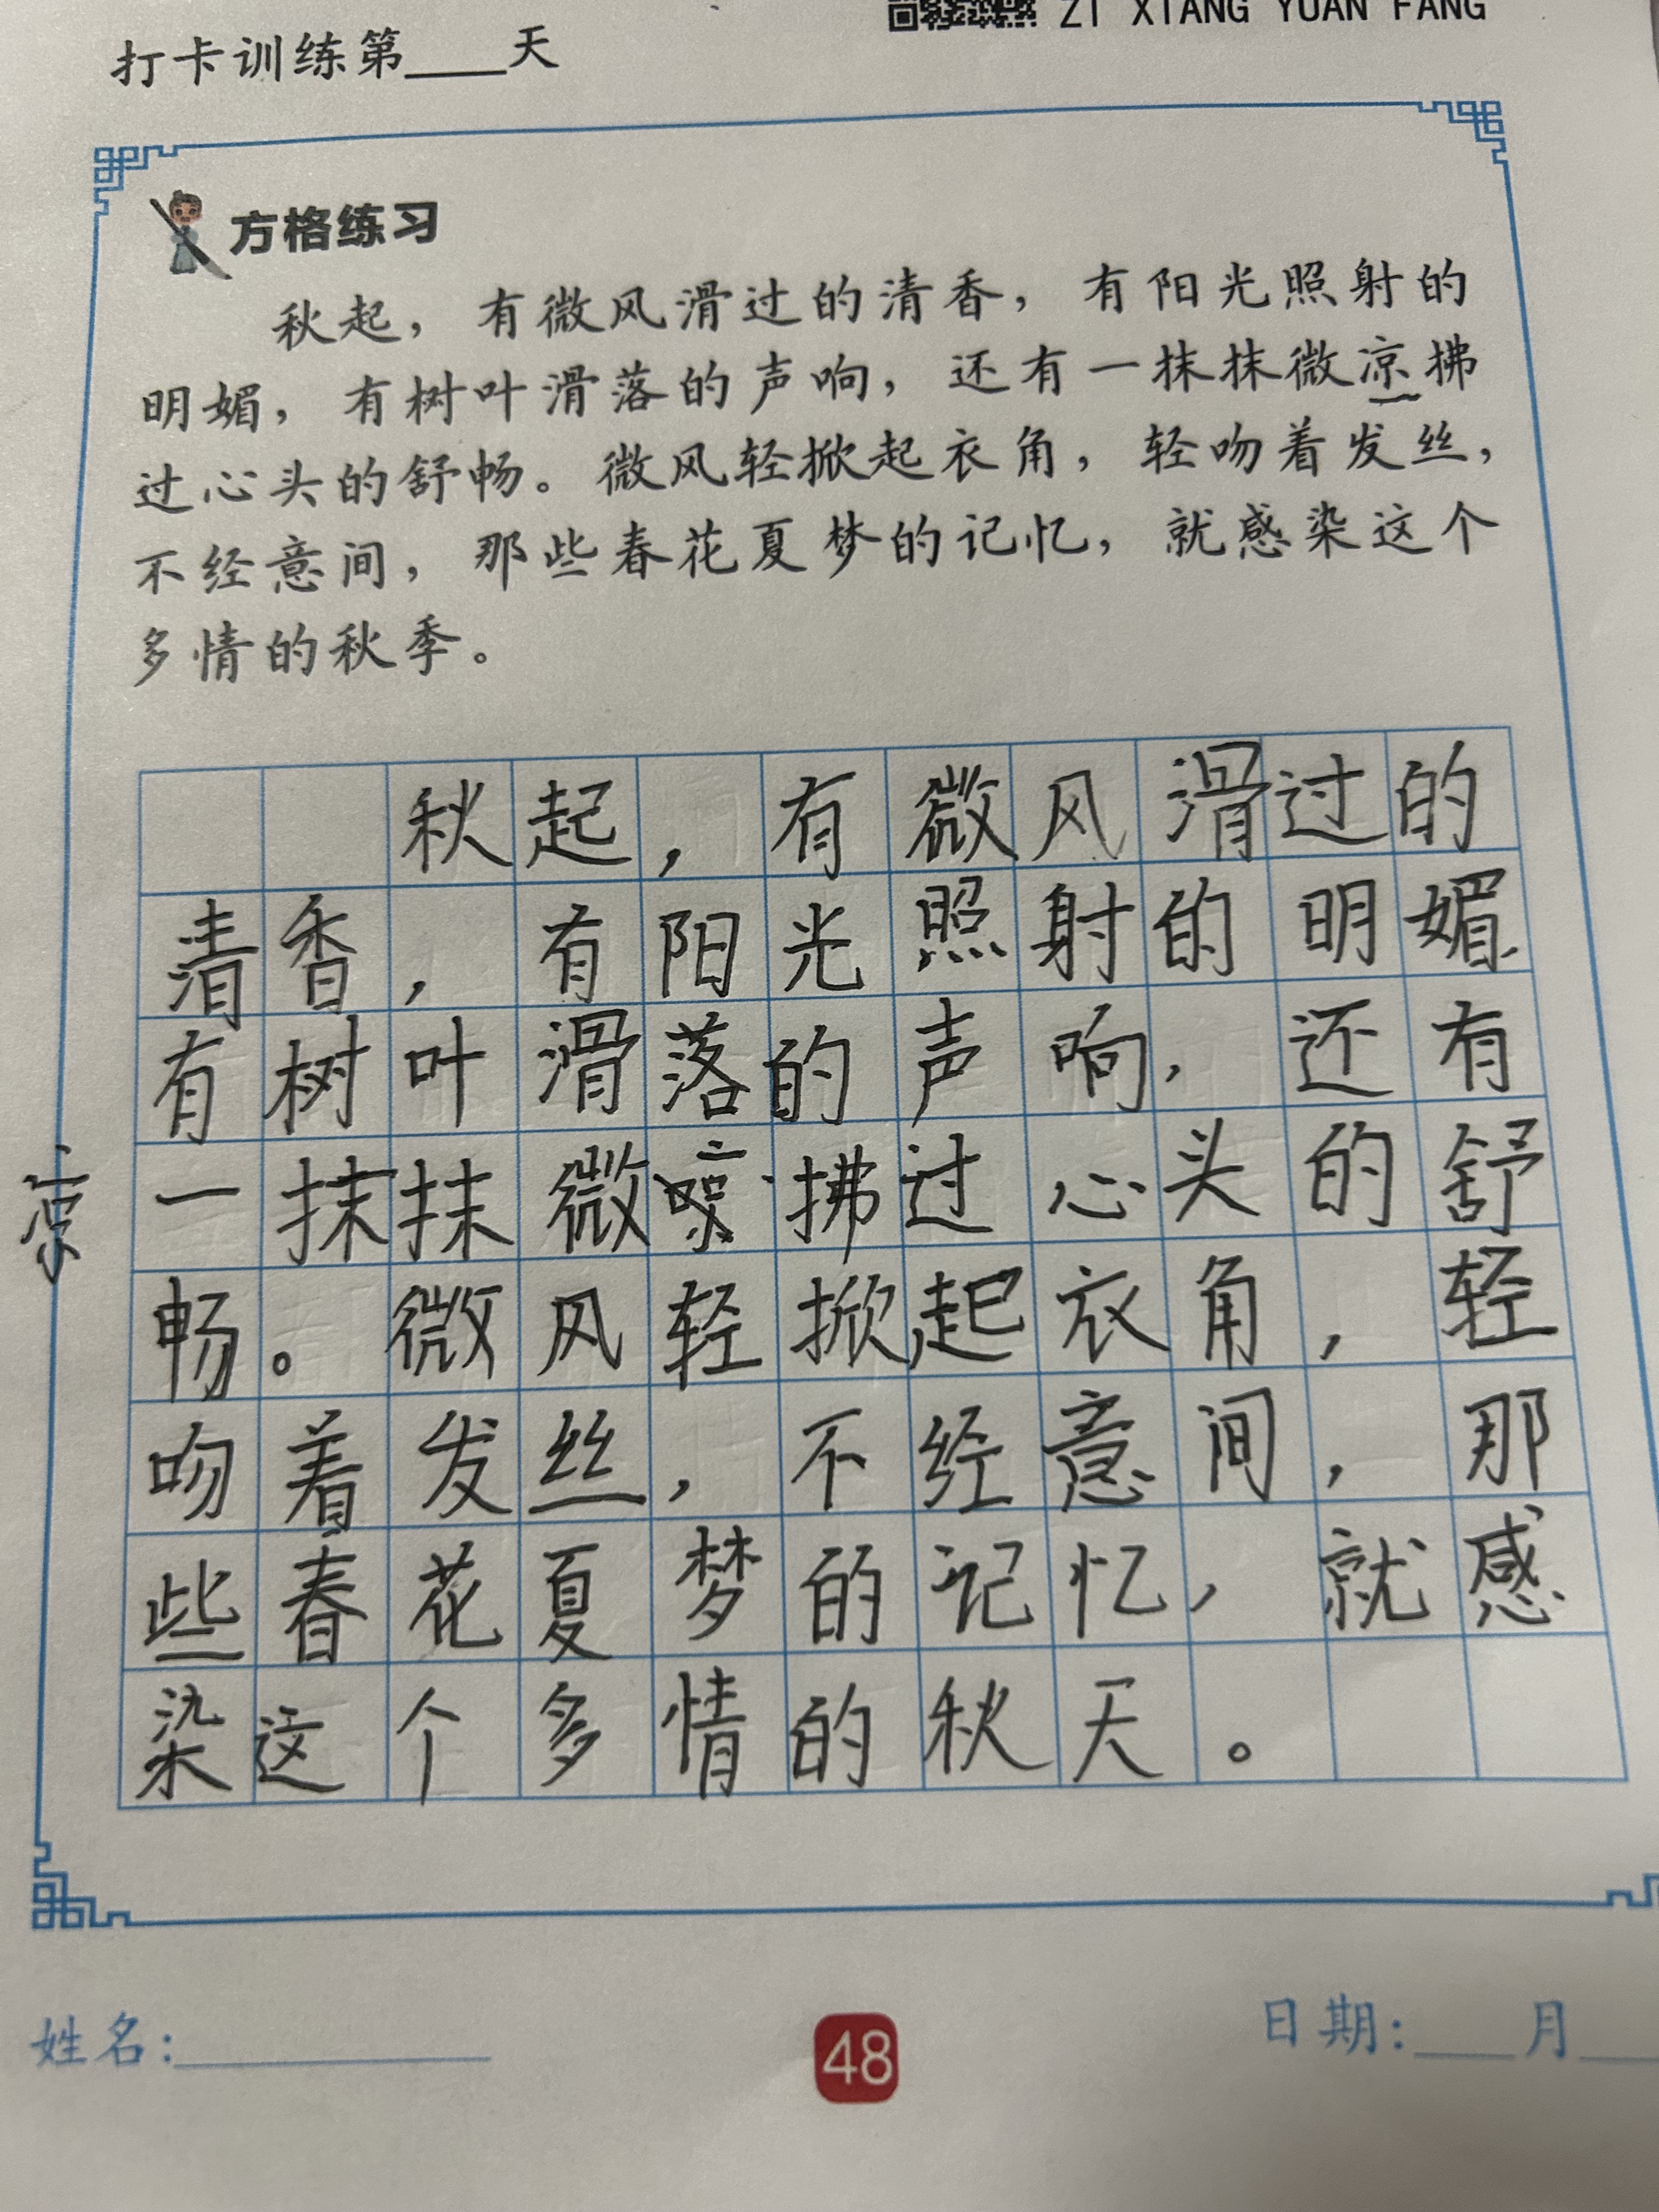 ZI XIANG YUAN FANG
打卡训练第____天
方格练习
秋起，有微风滑过的清香，有阳光照射的
明媚，有树叶滑落的声响，还有一抹抹微凉拂
过心头的舒畅。微风轻掀起衣角，轻吻着发丝，
不经意间，那些春花夏梦的记忆，就感染这个
多情的秋季。
秋起，有微风滑过的
清香，有阳光照射的明媚
有树叶滑落的声响，还有
一抹抹微拂过心头的舒
畅。微风轻掀起衣角，轻
吻着发丝，不经意间，那
些春花夏梦的记忆，就感
染这个多情的秋天。
姓名：
48
日期：___月